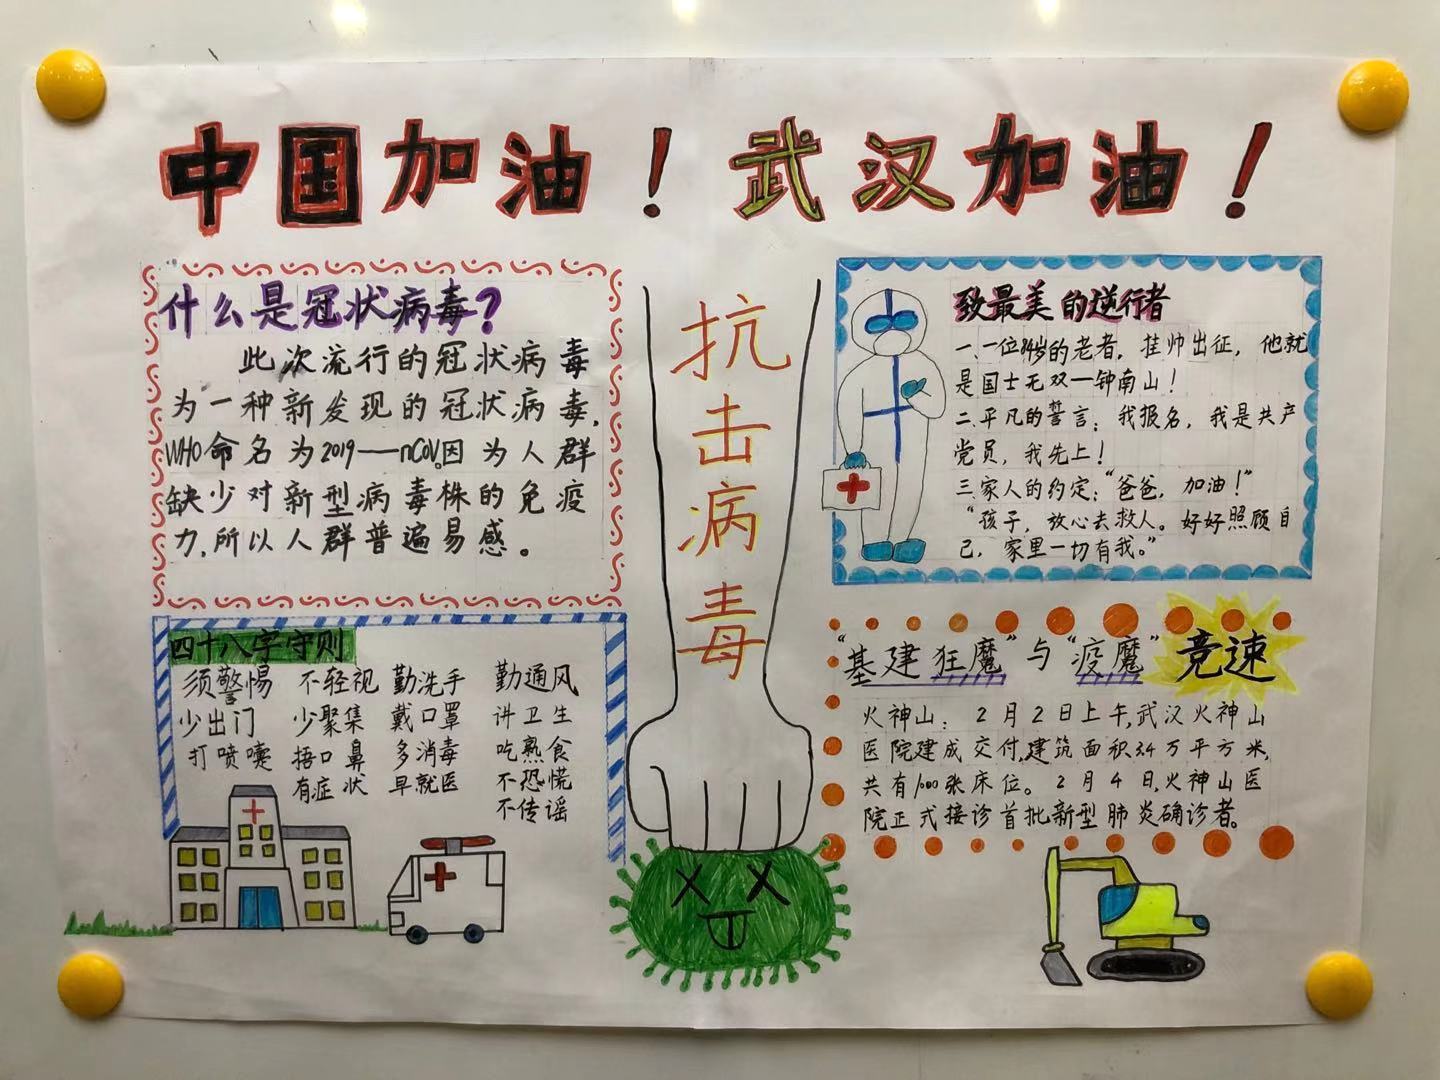 中国加油！武汉加油！
什么是冠状病毒？
此次流行的冠状病毒
为一种新发现的冠状病毒,
WHO命名为2019—nCoV。因为人群
缺少对新型病毒株的免疫
力,所以人群普遍易感。
四十八字守则
须警惕 不轻视 勤洗手 勤通风
少出门 少聚集 戴口罩 讲卫生
打喷嚏 捂口鼻 多消毒 吃熟食
有症状 早就医 不恐慌
不传谣
抗击病毒
致最美的逆行者
一、一位84岁的老者，挂帅出征，他就
是国士无双—钟南山！
二、平凡的誓言：我报名，我是共产
党员，我先上！
三、家人的约定：“爸爸，加油！”
“孩子，放心去救人。好好照顾自
己，家里一切有我。”
“基建狂魔”与“疫魔”竞速
火神山：2月2日上午,武汉火神山
医院建成交付,建筑面积3.4万平方米,
共有1000张床位。2月4日,火神山医
院正式接诊首批新型肺炎确诊者。